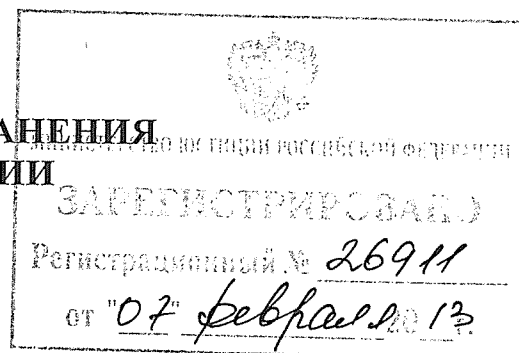 АНЕНИЯ
МИНИСТЕРСТВО ЮСТИЦИИ РОССИЙСКОЙ ФЕДЕРАЦИИ
ИИ
ЗАРЕГИСТРИРОВАНО
Регистрационный № 26911
от "07" февраля 2013 г.